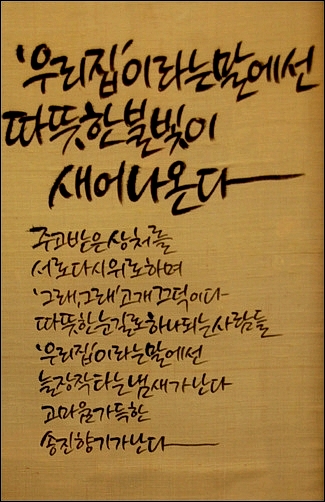 '우리집'이라는 말에선
따뜻한 불빛이
새어나온다
주고받은 상처를
서로 다시 위로하며
'그래, 그래' 고개 끄덕이다
따뜻한 눈길로 하나 되는 사람들
'우리집'이라는 말에선
늘 장작 타는 냄새가 난다
고마움 가득한
송진 향기가 난다